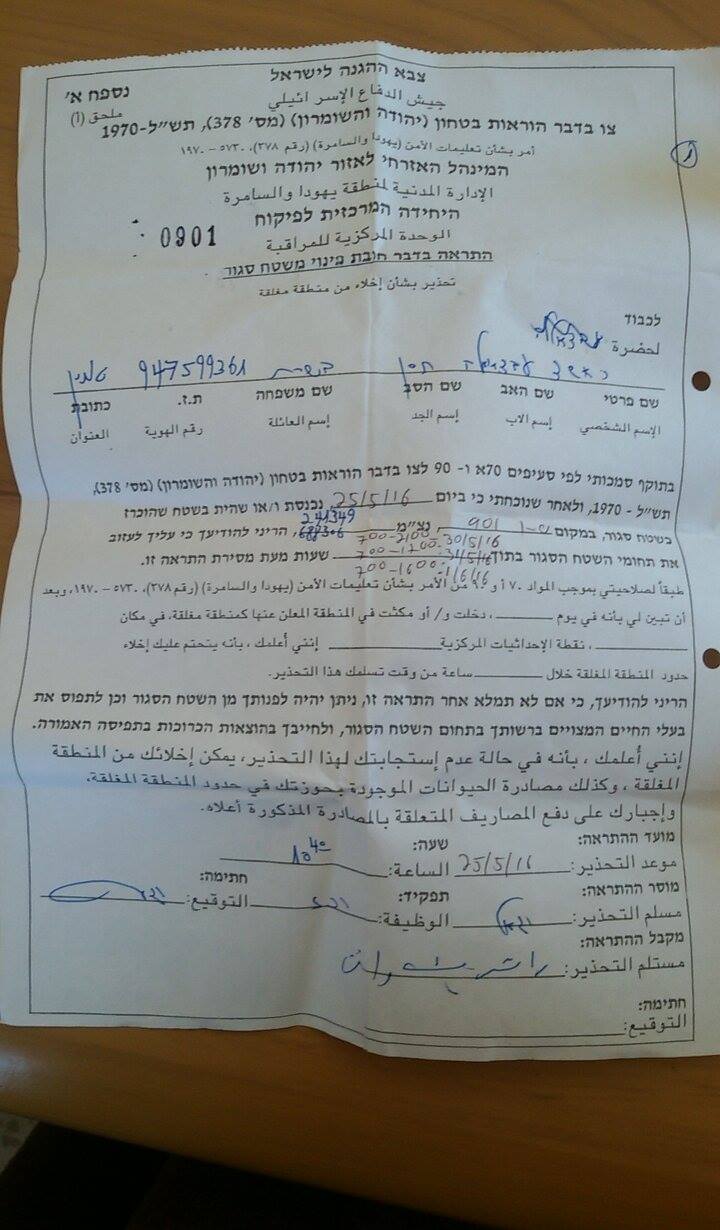 צבא ההגנה לישראל
جيش الدفاع الإسرائيلي
נספח א'
ملحق (١)
צו בדבר הוראות בטחון (יהודה והשומרון) (מס' 378), תש"ל-1970
أمر بشأن تعليمات الأمن (يهودا والسامرة) (رقم ٣٧٨)، ٥٧٣٠ - ١٩٧٠
המינהל האזרחי לאזור יהודה ושומרון
الإدارة المدنية لمنطقة يهودا والسامرة
היחידה המרכזית לפיקוח
الوحدة المركزية للمراقبة
0901
התראה בדבר חובת פינוי משטח סגור
تحذير بشأن إخلاء من منطقة مغلقة
לכבוד
لحضرة
947599361
שם פרטי שם האב שם הסב שם משפחה ת.ז. כתובת
الإسم الشخصي إسم الاب إسم الجد إسم العائلة رقم الهوية العنوان
בתוקף סמכותי לפי סעיפים 70א ו- 90 לצו בדבר הוראות בטחון (יהודה והשומרון) (מס' 378),
תש"ל - 1970, ולאחר שנוכחתי כי ביום 25/5/16 נכנסת ו/או שהית בשטח שהוכרז
כשטח סגור, במקום 901 נצ"מ 241349 הריני להודיעך כי עליך לעזוב
700-2100 30/5/16
את תחומי השטח הסגור בתוך 700-1700 31/5/16 שעות מעת מסירת התראה זו.
700-1600 1/6/16
طبقاً لصلاحيتي بموجب المواد ٧٠ أ و ٩٠ من الأمر بشأن تعليمات الأمن (يهودا والسامرة) (رقم ٣٧٨)، ٥٧٣٠ - ١٩٧٠، وبعد
أن تبين لي بأنه في يوم ، دخلت و/ أو مكثت في المنطقة المعلن عنها كمنطقة مغلقة، في مكان
، نقطة الإحداثيات المركزية إنني أعلمك ، بأنه يتحتم عليك إخلاء
حدود المنطقة المغلقة خلال ساعة من وقت تسلمك هذا التحذير.
הריני להודיעך, כי אם לא תמלא אחר התראה זו, ניתן יהיה לפנותך מן השטח הסגור וכן לתפוס את
בעלי החיים המצויים ברשותך בתחום השטח הסגור, ולחייבך בהוצאות הכרוכות בתפיסה האמורה.
إنني أعلمك ، بأنه في حالة عدم إستجابتك لهذا التحذير، يمكن إخلائك من المنطقة
المغلقة ، وكذلك مصادرة الحيوانات الموجودة بحوزتك في حدود المنطقة المغلقة،
وإجبارك على دفع المصاريف المتعلقة بالمصادرة المذكورة أعلاه.
מועד ההתראה: שעה:
موعد التحذير: 25/5/16 الساعة: 10 40
מוסר ההתראה: תפקיד: חתימה:
مسلم التحذير: الوظيفة: التوقيع:
מקבל ההתראה:
مستلم التحذير:
חתימה:
التوقيع: